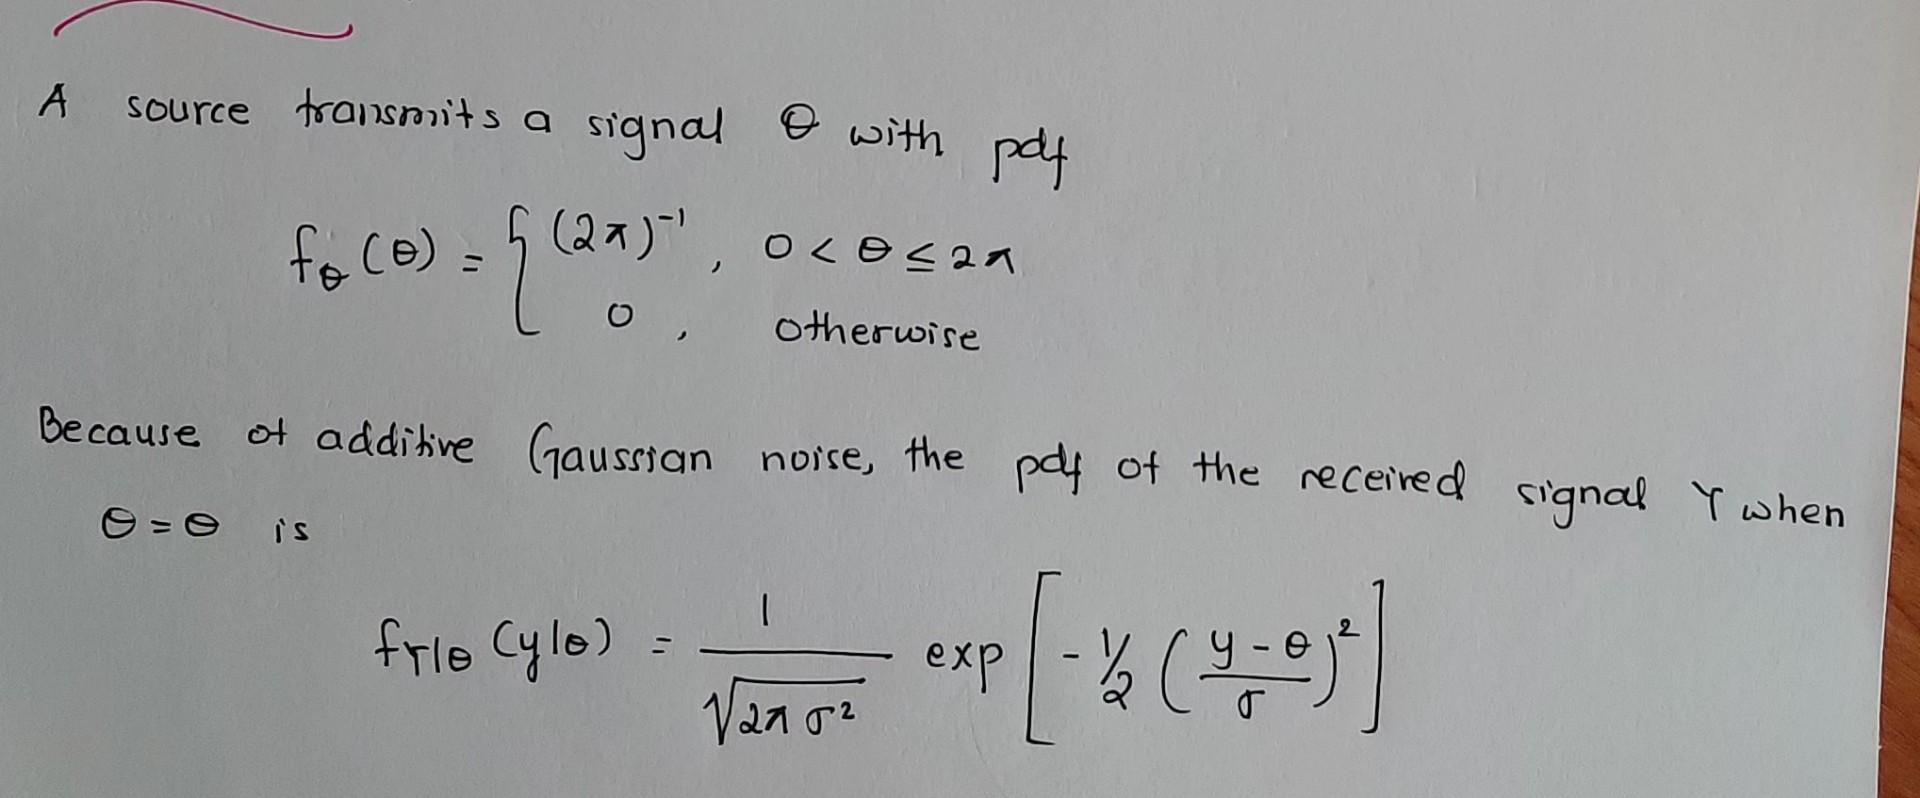 A source transmits a signal Θ with pdf
f_Θ(θ) = { (2π)⁻¹ , 0 < θ ≤ 2π
0 , otherwise
Because of additive Gaussian noise, the pdf of the received signal Y when
Θ = θ is
f_Y|Θ (y|θ) = 1 / √(2π σ²) exp [ - 1/2 ( (y - θ) / σ )² ]